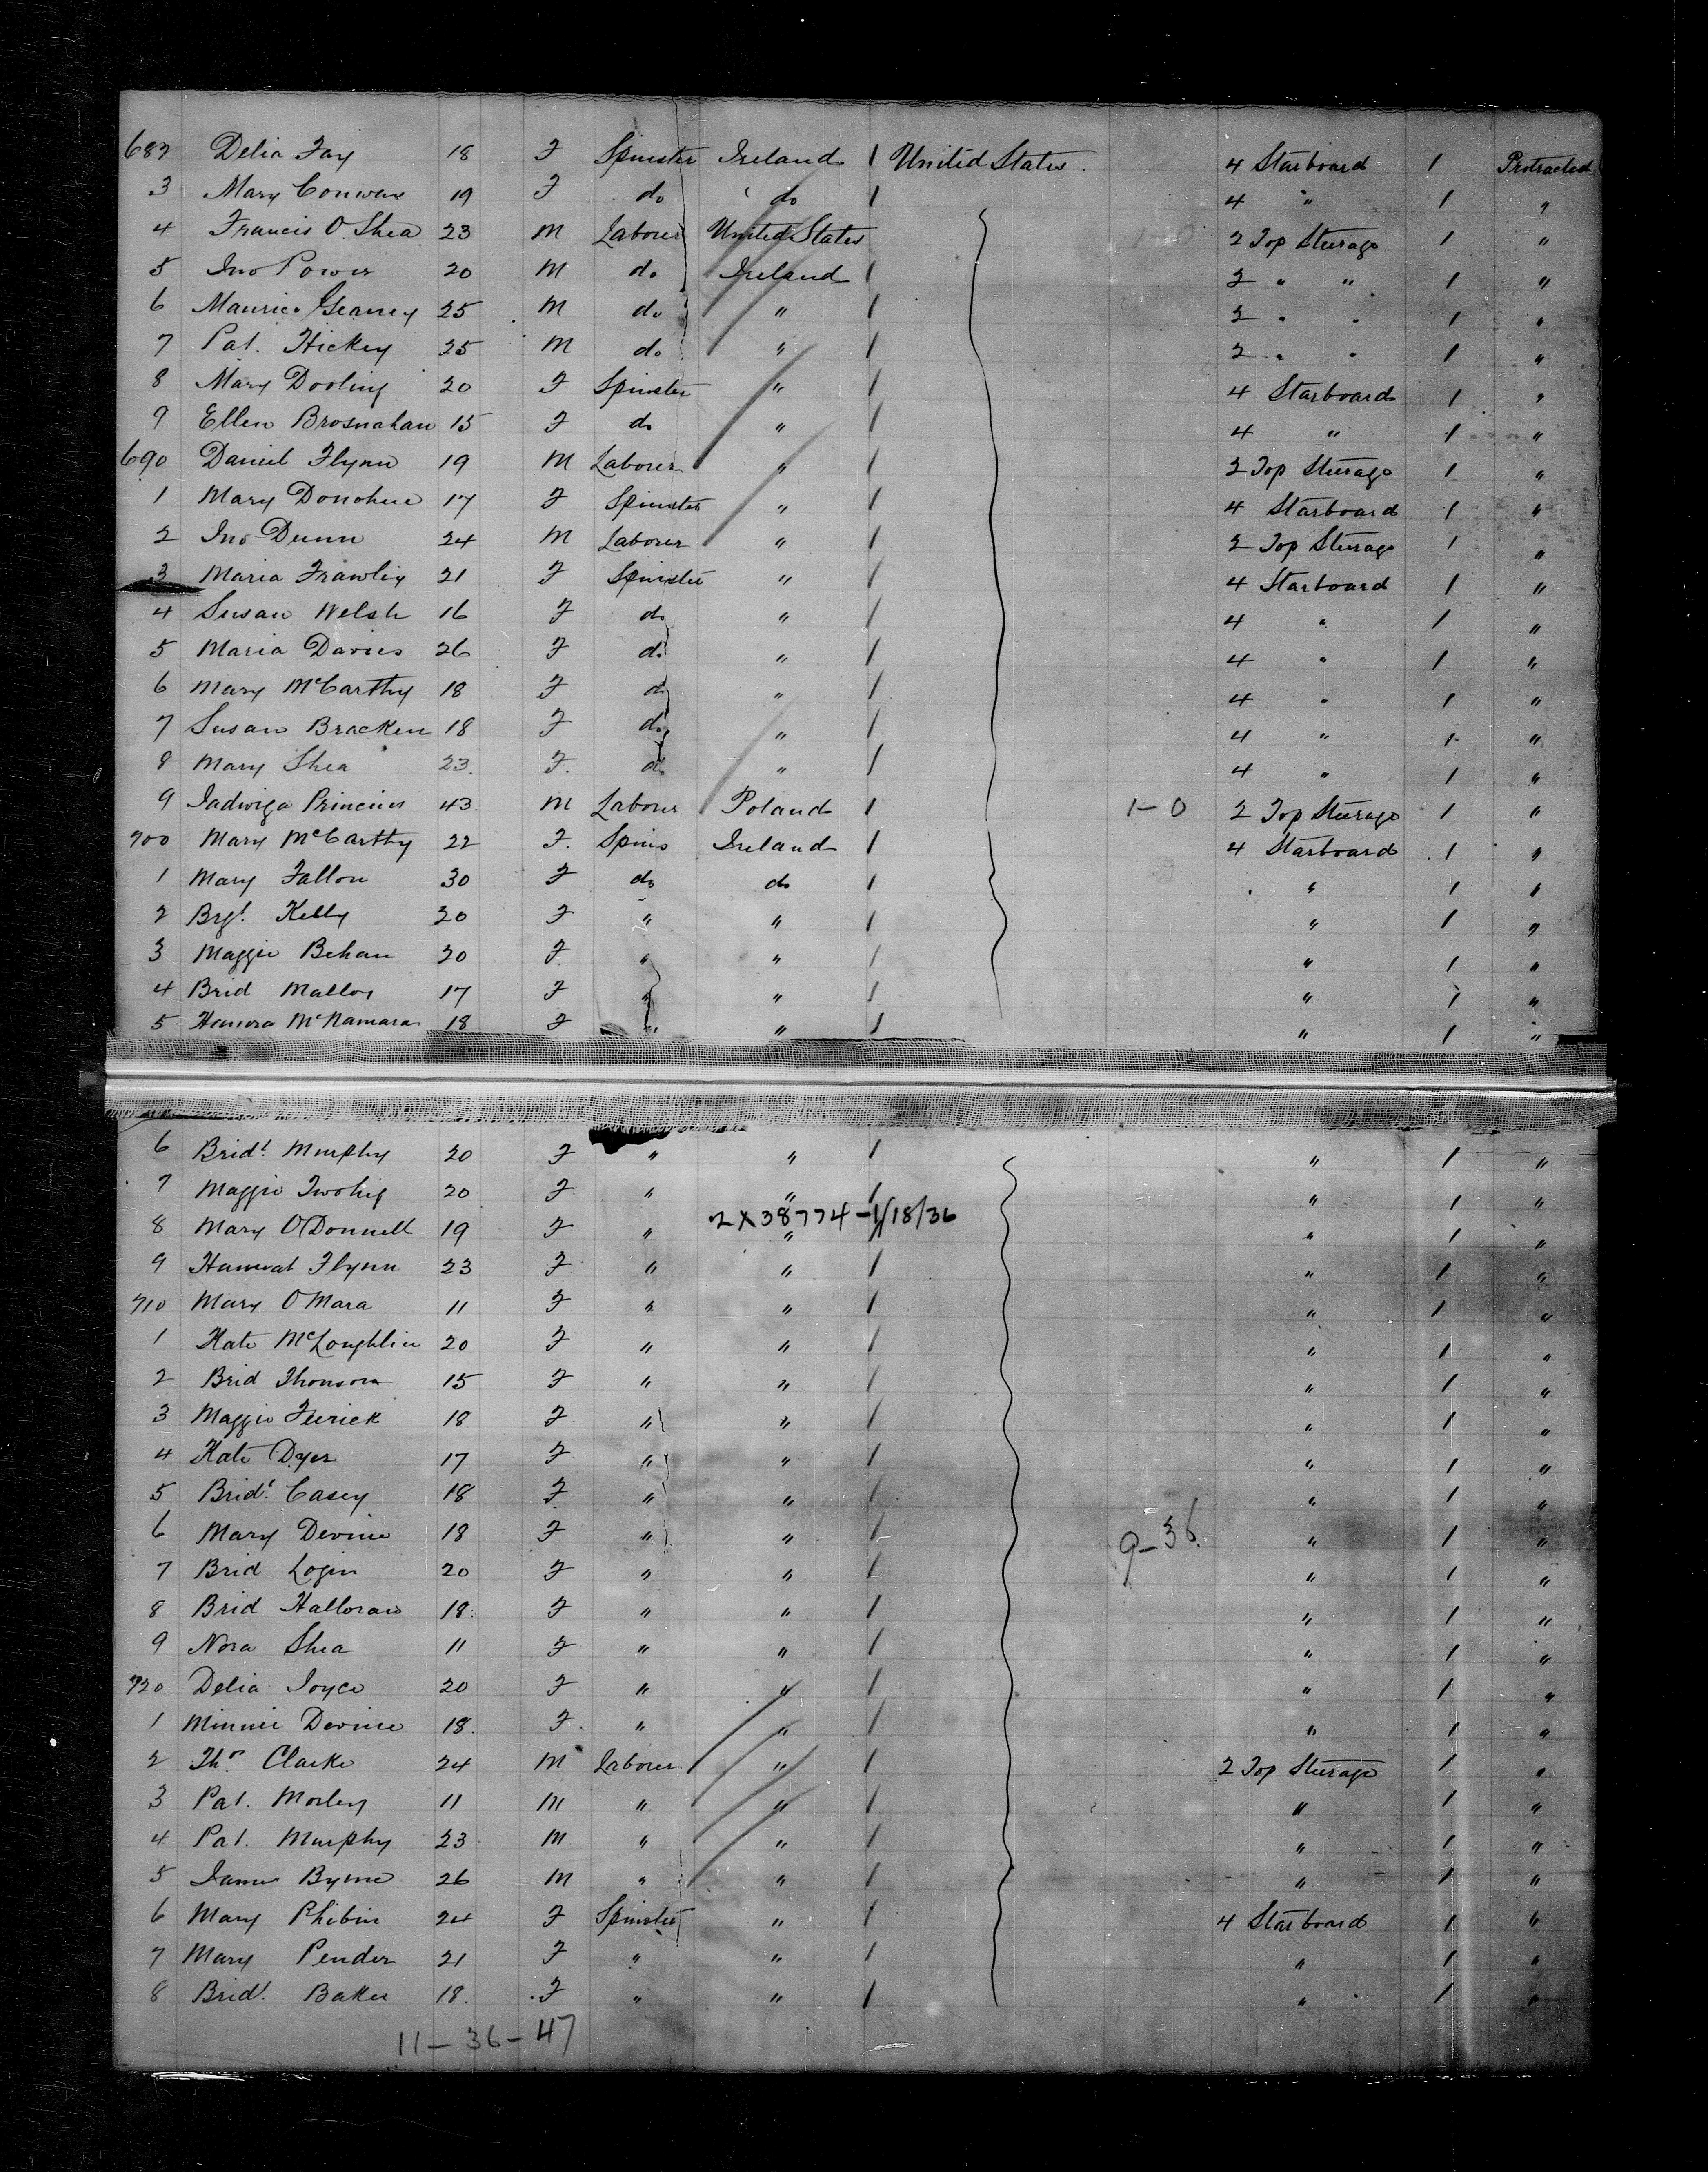 682 Delia Fay 18 F Spinster Ireland 1 United States. 4 Starboard 1 Protracted
3 Mary Conway 19 F do do 1 4 " 1 "
4 Francis O. Shea 23 M Laborer United States 1-0 2 Top Steerage 1 "
5 Jno Power 20 M do Ireland 1 2 " " 1 "
6 Maurice Geaney 25 M do " 1 2 " " 1 "
7 Pat. Hickey 25 M do " 1 2 " " 1 "
8 Mary Dooling 20 F Spinster " 1 4 Starboard 1 "
9 Ellen Brosnahan 15 F do " 1 4 " 1 "
690 Daniel Flynn 19 M Laborer " 1 2 Top Steerage 1 "
1 Mary Donohue 17 F Spinster " 1 4 Starboard 1 "
2 Jno Dunn 24 M Laborer " 1 2 Top Steerage 1 "
3 Maria Frawley 21 F Spinster " 1 4 Starboard 1 "
4 Susan Welsh 16 F do " 1 4 " 1 "
5 Maria Davies 26 F do " 1 4 " 1 "
6 Mary McCarthy 18 F do " 1 4 " 1 "
7 Susan Bracken 18 F do " 1 4 " 1 "
8 Mary Shea 23. F. do " 1 4 " 1 "
9 Jadwiga 43 M Laborer Poland 1 1-0 2 Top Steerage 1 "
700 Mary McCarthy 22 F. Spins Ireland 1 4 Starboard 1 "
1 Mary Fallon 30 F do do 1 " 1 "
2 Brgt. Kelly 20 F " " 1 " 1 "
3 Maggie Behan 20 F " " 1 " 1 "
4 Brid Malloy 17 F " " 1 " 1 "
5 Hanora McNamara 18 F " " 1 " 1 "
6 Bridt. Murphy 20 F " " 1 " 1 "
7 Maggie Twohig 20 F " " 1 " 1 "
2X38774-1/18/36
8 Mary O'Donnell 19 F " " 1 " 1 "
9 Flynn 23 F " " 1 " 1 "
710 Mary O Mara 11 F " " 1 " 1 "
1 Kate McLoughlin 20 F " " 1 " 1 "
2 Brid Thomson 15 F " " 1 " 1 "
3 Maggie Feerick 18 F " " 1 " 1 "
4 Kate Dyer 17 F " " 1 " 1 "
5 Bridt. Casey 18 F " " 1 " 1 "
6 Mary Devine 18 F " " 1 9-36. " 1 "
7 Brid Login 20 F " " 1 " 1 "
8 Brid Halloran 18. F " " 1 " 1 "
9 Nora Shea 11 F " " 1 " 1 "
720 Delia Joyce 20 F " " 1 " 1 "
1 Minnie Devine 18. F. " " 1 " 1 "
2 Thos Clarke 24 M Laborer " 1 2 Top Steerage 1 "
3 Pat. Morley 11 M " " 1 " 1 "
4 Pat. Murphy 23 M " " 1 " 1 "
5 James Byrne 26 M " " 1 " 1 "
6 Mary Philbin 24 F Spinster " 1 4 Starboard 1 "
7 Mary Pender 21 F " " 1 " 1 "
8 Bridt. Baker 18. F " " 1 " 1 "
11-36-47